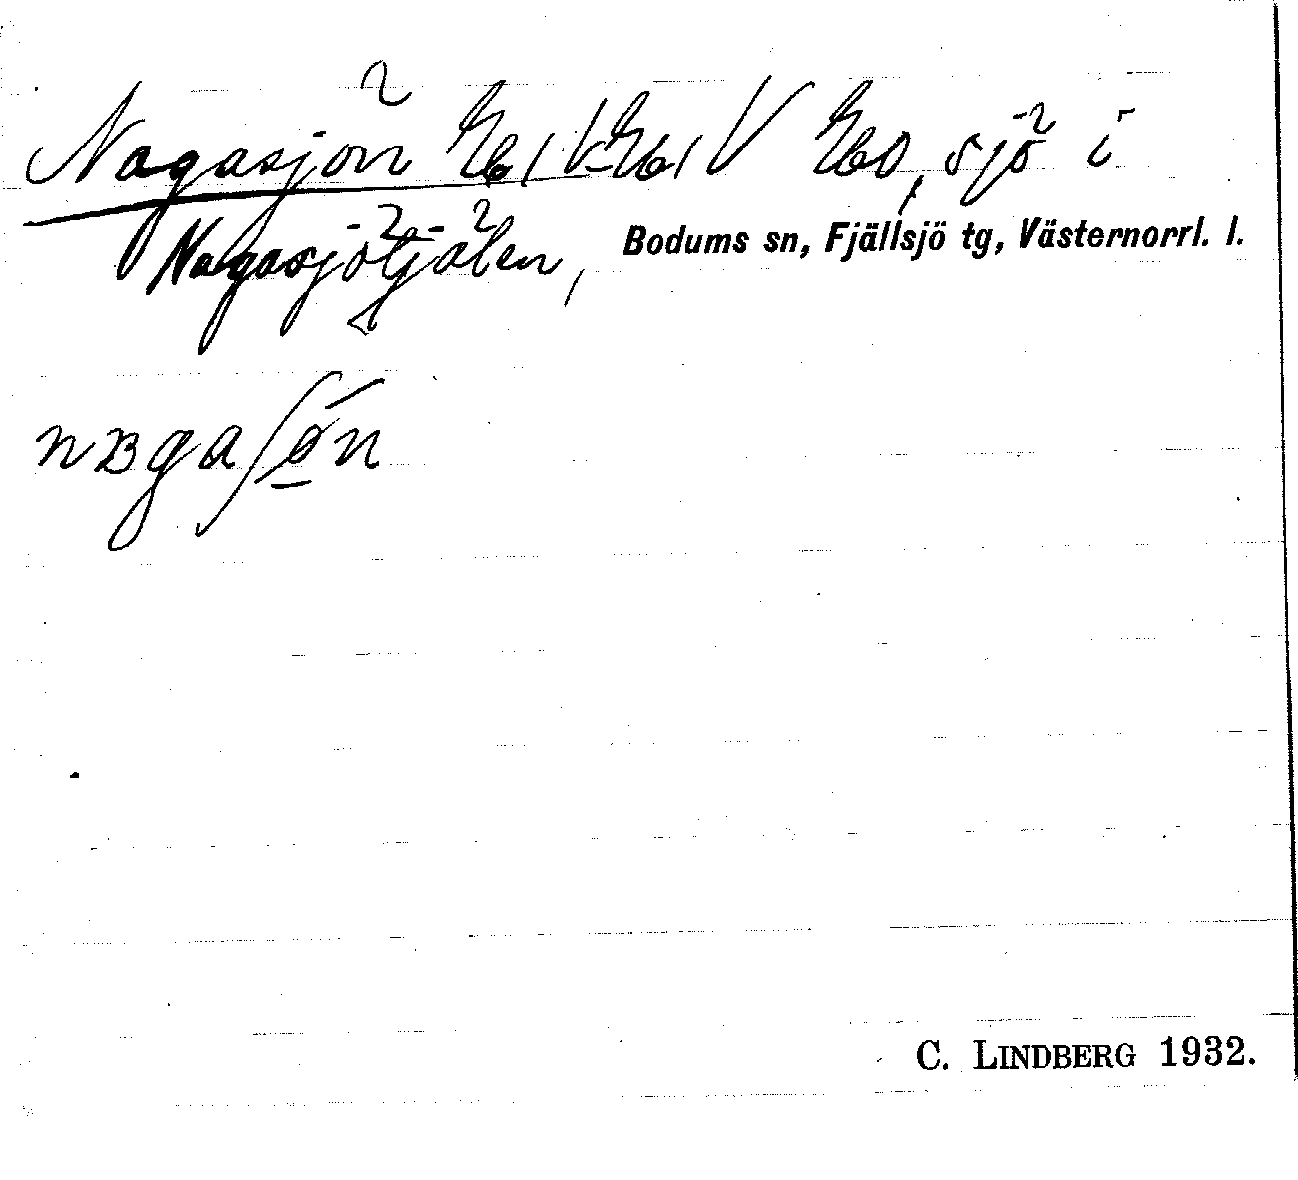 Nagasjön Eb1V-Eb1V Ebo, sjö i
Nagasjötjälen, Bodums sn, Fjällsjö tg, Västernorrl. l.
nʙgaʃøn
C. LINDBERG 1932.